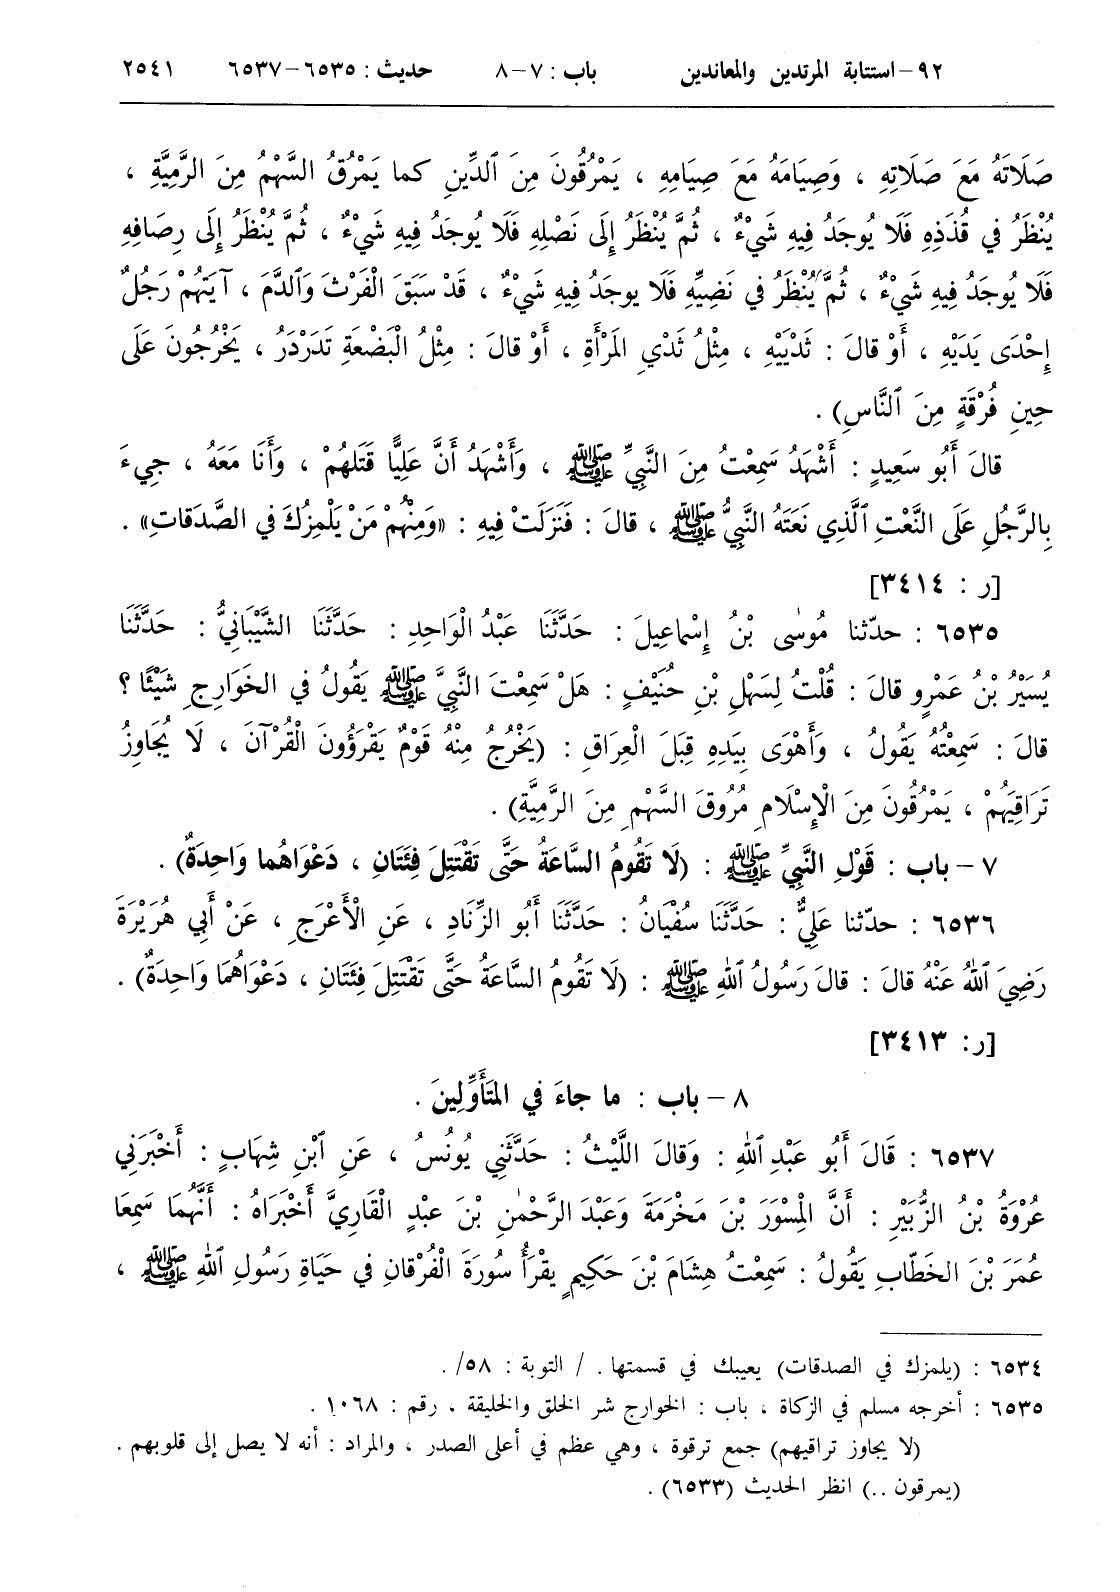 ٩٢- استتابة المرتدين والمعاندين باب : ٧-٨ حديث : ٦٥٣٥-٦٥٣٧ ٢٥٤١
صَلَاتَهُ مَعَ صَلَاتِهِ ، وَصِيَامَهُ مَعَ صِيَامِهِ ، يَمْرُقُونَ مِنَ ٱلدِّينِ كما يَمْرُقُ السَّهْمُ مِنَ الرَّمِيَّةِ ،
يُنْظَرُ في قُذَذِهِ فَلَا يُوجَدُ فِيهِ شَيْءٌ ، ثُمَّ يُنْظَرُ إِلَى نَصْلِهِ فَلَا يُوجَدُ فِيهِ شَيْءٌ ، ثُمَّ يُنْظَرُ إِلَى رِصَافِهِ
فَلَا يُوجَدُ فِيهِ شَيْءٌ ، ثُمَّ يُنْظَرُ في نَضِيِّهِ فَلَا يوجَدُ فِيهِ شَيْءٌ ، قَدْ سَبَقَ الْفَرْثَ وَٱلدَّمَ ، آيَتُهُمْ رَجُلٌ
إِحْدَى يَدَيْهِ ، أَوْ قالَ : ثَدْيَيْهِ ، مِثْلُ ثَدْيِ المَرْأَةِ ، أَوْ قالَ : مِثْلُ الْبَضْعَةِ تَدَرْدَرُ ، يَخْرُجُونَ عَلَى
حِينِ فُرْقَةٍ مِنَ ٱلنَّاسِ) .
قالَ أَبُو سَعِيدٍ : أَشْهَدُ سَمِعْتُ مِنَ النَّبِيِّ ﷺ ، وَأَشْهَدُ أَنَّ عَلِيًّا قَتَلَهُمْ ، وَأَنَا مَعَهُ ، جِيءَ
بِالرَّجُلِ عَلَى النَّعْتِ ٱلَّذِي نَعَتَهُ النَّبِيُّ ﷺ ، قالَ : فَنَزَلَتْ فِيهِ : «وَمِنْهُمْ مَنْ يَلْمِزُكَ في الصَّدَقاتِ» .
[ر : ٣٤١٤]
٦٥٣٥ : حدّثنا مُوسٰى بْنُ إِسْماعِيلَ : حَدَّثَنَا عَبْدُ الْوَاحِدِ : حَدَّثَنَا الشَّيْبَانِيُّ : حَدَّثَنَا
يُسَيْرُ بْنُ عَمْرٍو قالَ : قُلْتُ لِسَهْلِ بْنِ حُنَيْفٍ : هَلْ سَمِعْتَ النَّبِيَّ ﷺ يَقُولُ في الخَوَارِجِ شَيْئًا ؟
قالَ : سَمِعْتُهُ يَقُولُ ، وَأَهْوَى بِيَدِهِ قِبَلَ الْعِرَاقِ : (يَخْرُجُ مِنْهُ قَوْمٌ يَقْرَؤُونَ الْقُرْآنَ ، لَا يُجَاوِزُ
تَرَاقِيَهُمْ ، يَمْرُقُونَ مِنَ الْإِسْلَامِ مُرُوقَ السَّهْمِ مِنَ الرَّمِيَّةِ) .
٧ - باب : قَوْلِ النَّبِيِّ ﷺ : (لَا تَقُومُ السَّاعَةُ حَتَّى تَقْتَتِلَ فِئَتَانِ ، دَعْوَاهُما وَاحِدَةٌ) .
٦٥٣٦ : حدّثنا عَلِيٌّ : حَدَّثَنَا سُفْيَانُ : حَدَّثَنَا أَبُو الزِّنَادِ ، عَنِ الْأَعْرَجِ ، عَنْ أَبِي هُرَيْرَةَ
رَضِيَ ٱللهُ عَنْهُ قالَ : قالَ رَسُولُ ٱللهِ ﷺ : (لَا تَقُومُ السَّاعَةُ حَتَّى تَقْتَتِلَ فِئَتَانِ ، دَعْوَاهُمَا وَاحِدَةٌ) .
[ر: ٣٤١٣]
٨ - باب : ما جاءَ في المتَأَوِّلِينَ .
٦٥٣٧ : قَالَ أَبُو عَبْدِ ٱللهِ : وَقالَ اللَّيْثُ : حَدَّثَنِي يُونُسُ ، عَنِ ٱبْنِ شِهَابٍ : أَخْبَرَنِي
عُرْوَةُ بْنُ الزُّبَيْرِ : أَنَّ الْمِسْوَرَ بْنَ مَخْرَمَةَ وَعَبْدَ الرَّحْمٰنِ بْنَ عبْدٍ الْقَارِيَّ أَخْبَرَاهُ : أَنَّهُمَا سَمِعَا
عُمَرَ بْنَ الخَطّابِ يَقُولُ : سَمِعْتُ هِشَامَ بْنَ حَكِيمٍ يقْرَأُ سُورَةَ الْفُرْقانِ في حَيَاةِ رَسُولِ ٱللهِ ﷺ ،
٦٥٣٤ : (يلمزك في الصدقات) يعيبك في قسمتها . / التوبة : ٥٨/ .
٦٥٣٥ : أخرجه مسلم في الزكاة ، باب : الخوارج شر الخلق والخليقة ، رقم : ١٠٦٨ .
(لا يجاوز تراقيهم) جمع ترقوة ، وهي عظم في أعلى الصدر ، والمراد : أنه لا يصل إلى قلوبهم .
(يمرقون ..) انظر الحديث (٦٥٣٣) .